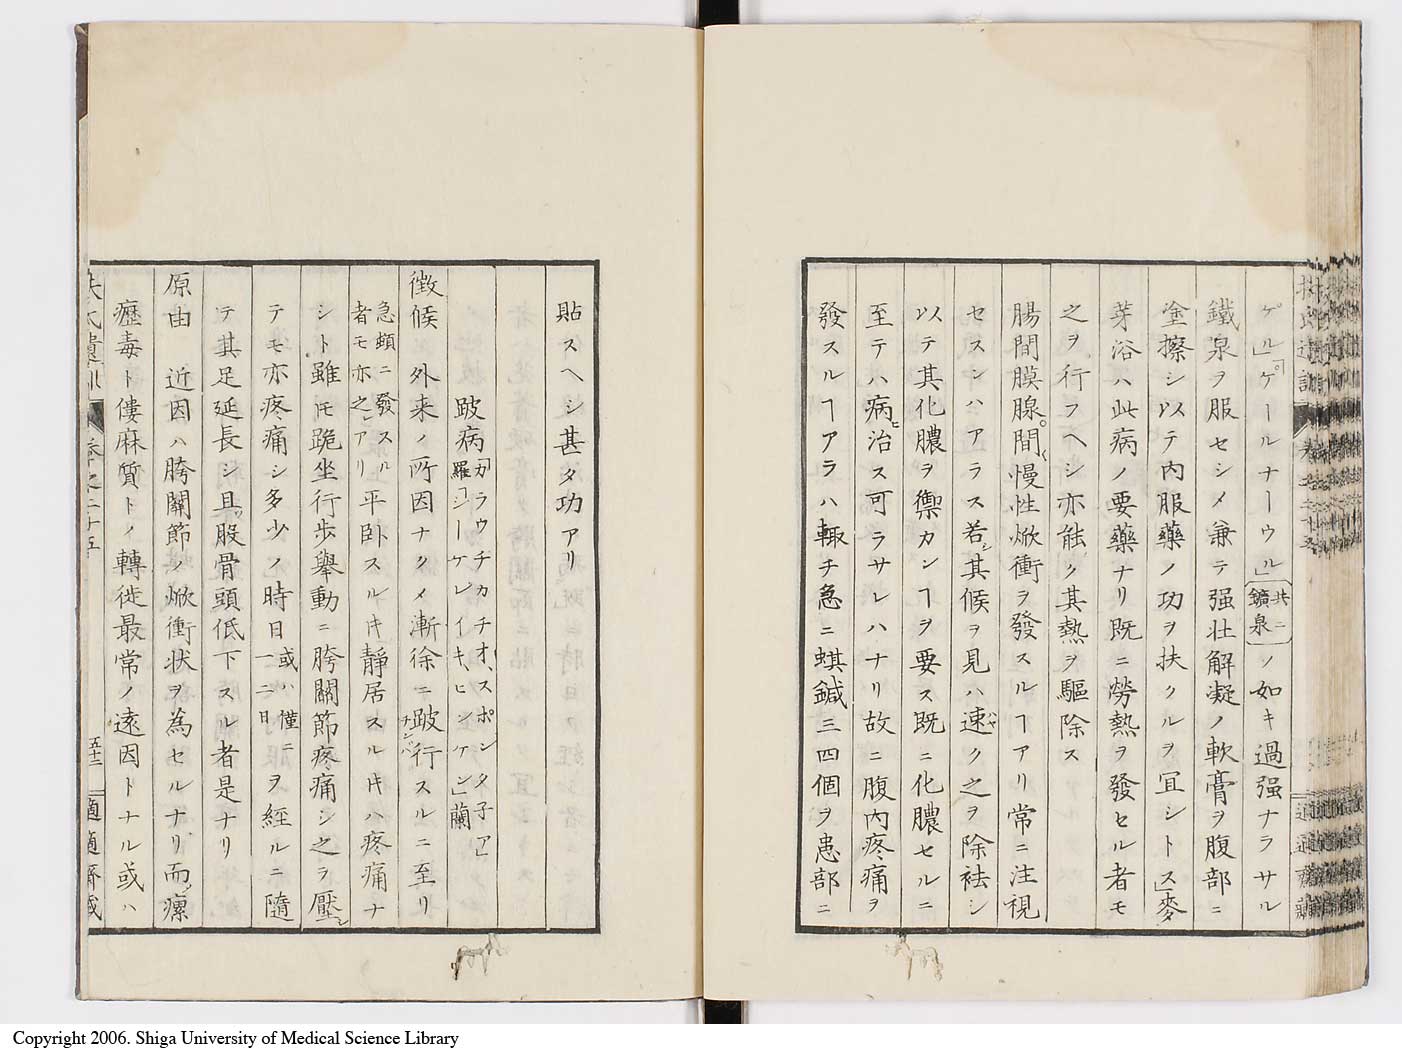 ゲル」「ゲールナーウル」共ニ鑛泉ノ如キ過强ナラサル
鐵泉ヲ服セシメ兼テ强壮解凝ノ軟膏ヲ腹部ニ
塗擦シ以テ内服藥ノ功ヲ扶クルヲ冝シトス」麥
芽浴ハ此病ノ要藥ナリ既ニ勞熱ヲ發セル者モ
之ヲ行フヘシ亦能ク其熱ヲ驅除ス
腸間膜腺間慢性焮衝ヲ發スルヿアリ常ニ注視
セスンハアラス若シ其候ヲ見ハ速ク之ヲ除祛シ
以テ其化膿ヲ禦カンヿヲ要ス既ニ化膿セルニ
至テハ病治ス可ラサレハナリ故ニ腹内疼痛ヲ
發スルヿアラハ輙チ急ニ蜞鍼三四個ヲ患部ニ
貼スヘシ甚タ功アリ
跛病「カラウヂカチオ、スポンタ子ア」羅「シーケレイキ、ヒンケン」蘭
徴候 外来ノ所因ナクメ漸徐ニ跛行スルニ至リ
急頻ニ發スル者モ亦之アリ平卧スルトキ靜居スルトキハ疼痛ナ
シト雖トモ跪坐行歩舉動ニ胯關節疼痛シ之ヲ壓シ
テモ亦疼痛シ多少ノ時日或ハ僅ニ一二日ヲ經ルニ隨
テ其足延長シ且ツ股骨頭低下スル者是ナリ
原由 近因ハ胯關節ノ焮衝状ヲ為セルナリ而瘰
癧毒ト僂麻質トノ轉徙最常ノ遠因トナル或ハ
扶氏遺訓 卷之二十五 五十二 適適齋藏
Copyright 2006. Shiga University of Medical Science Library